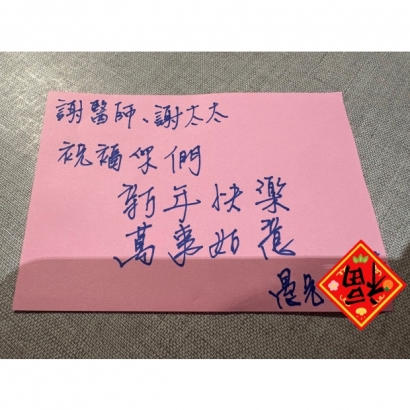 謝醫師、謝太太
祝福你們
新年快樂
萬事如意
福